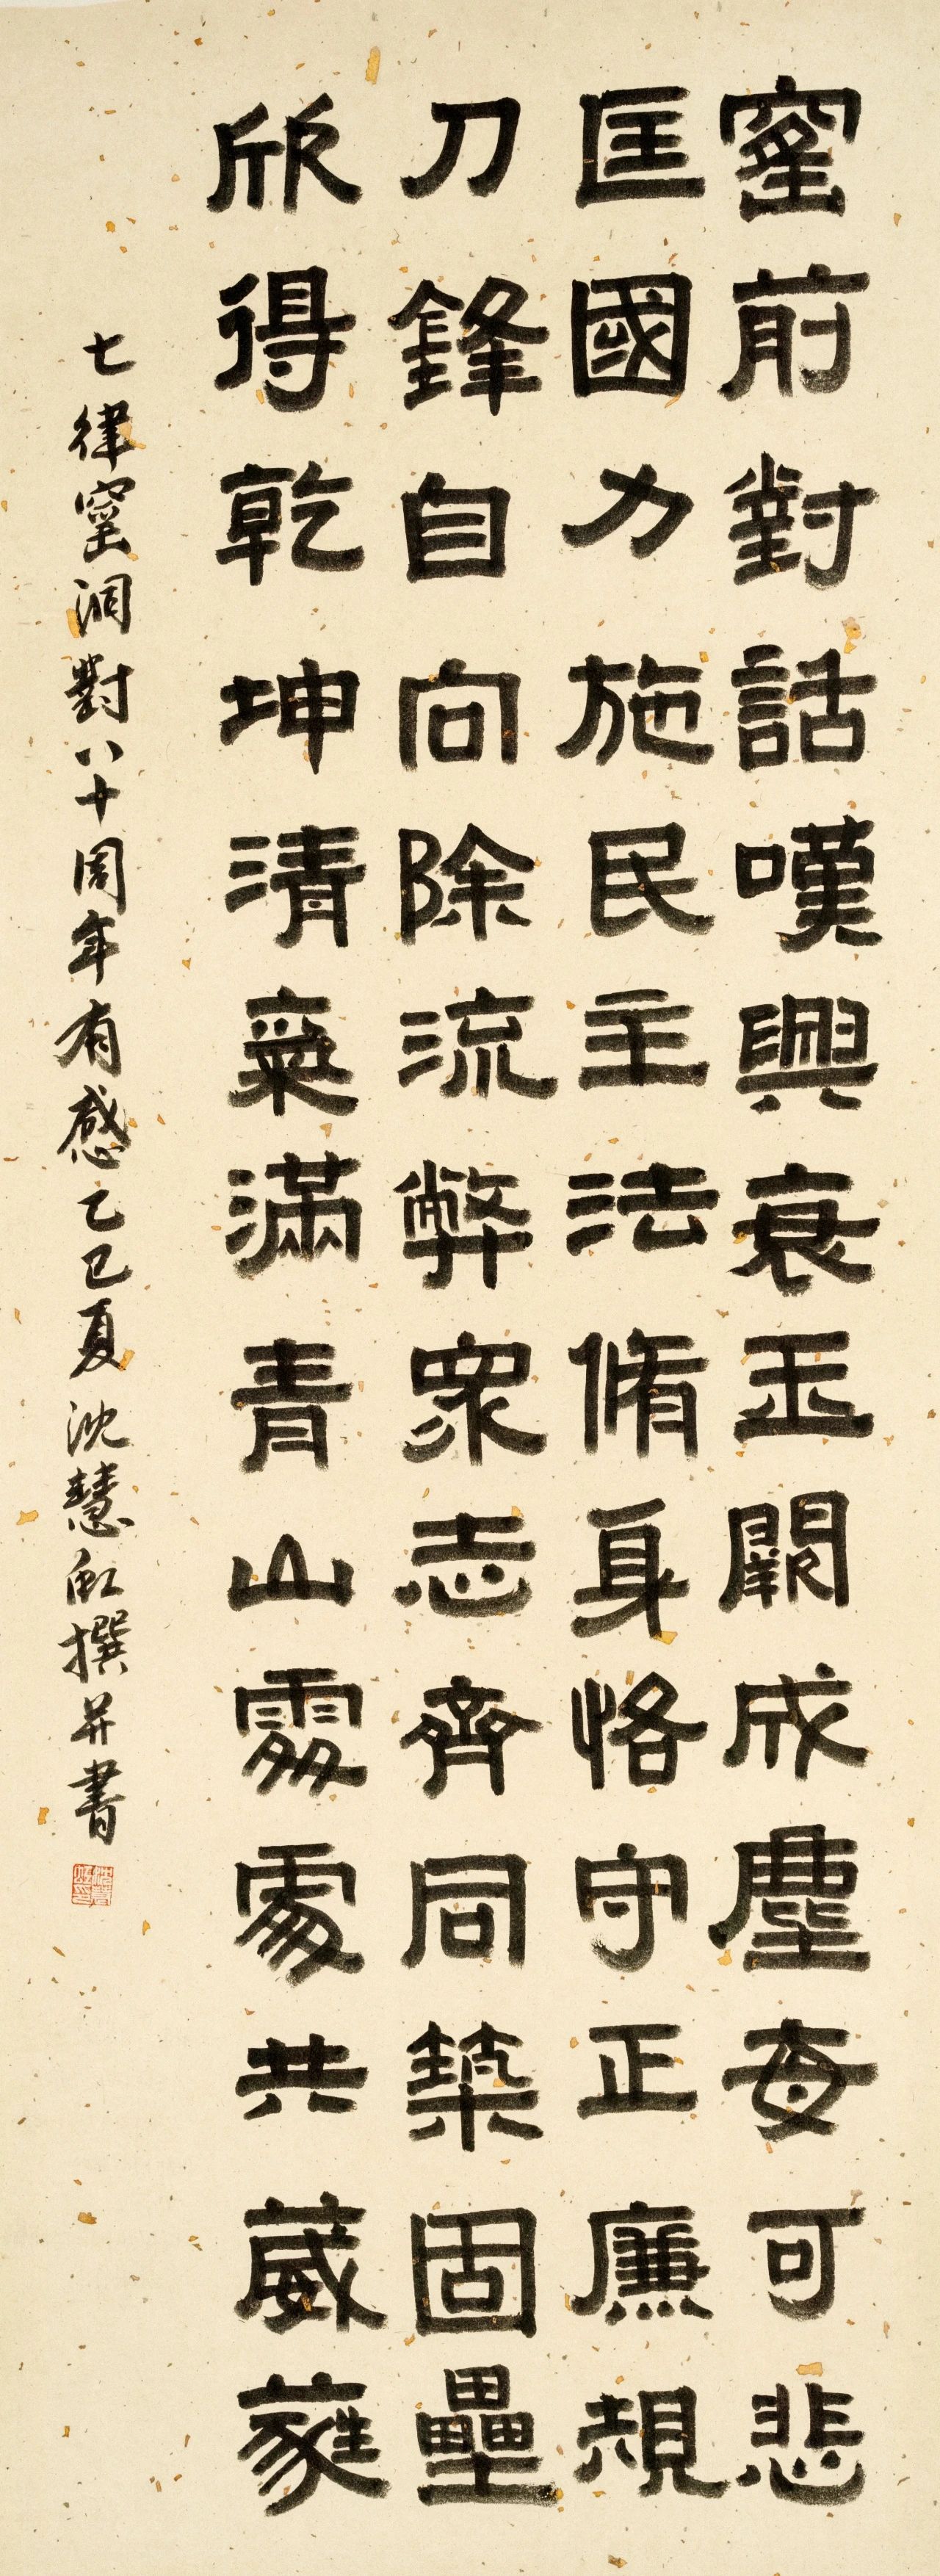 窰前對話嘆興衰玉闕成塵每可悲
匡國力施民主法脩身恪守正廉規
刀鋒自向除流弊衆志齊同築固壘
欣得乾坤清氣滿青山處處共葳蕤
七律窰洞對八十周年有感乙巳夏沈慧虹撰并書